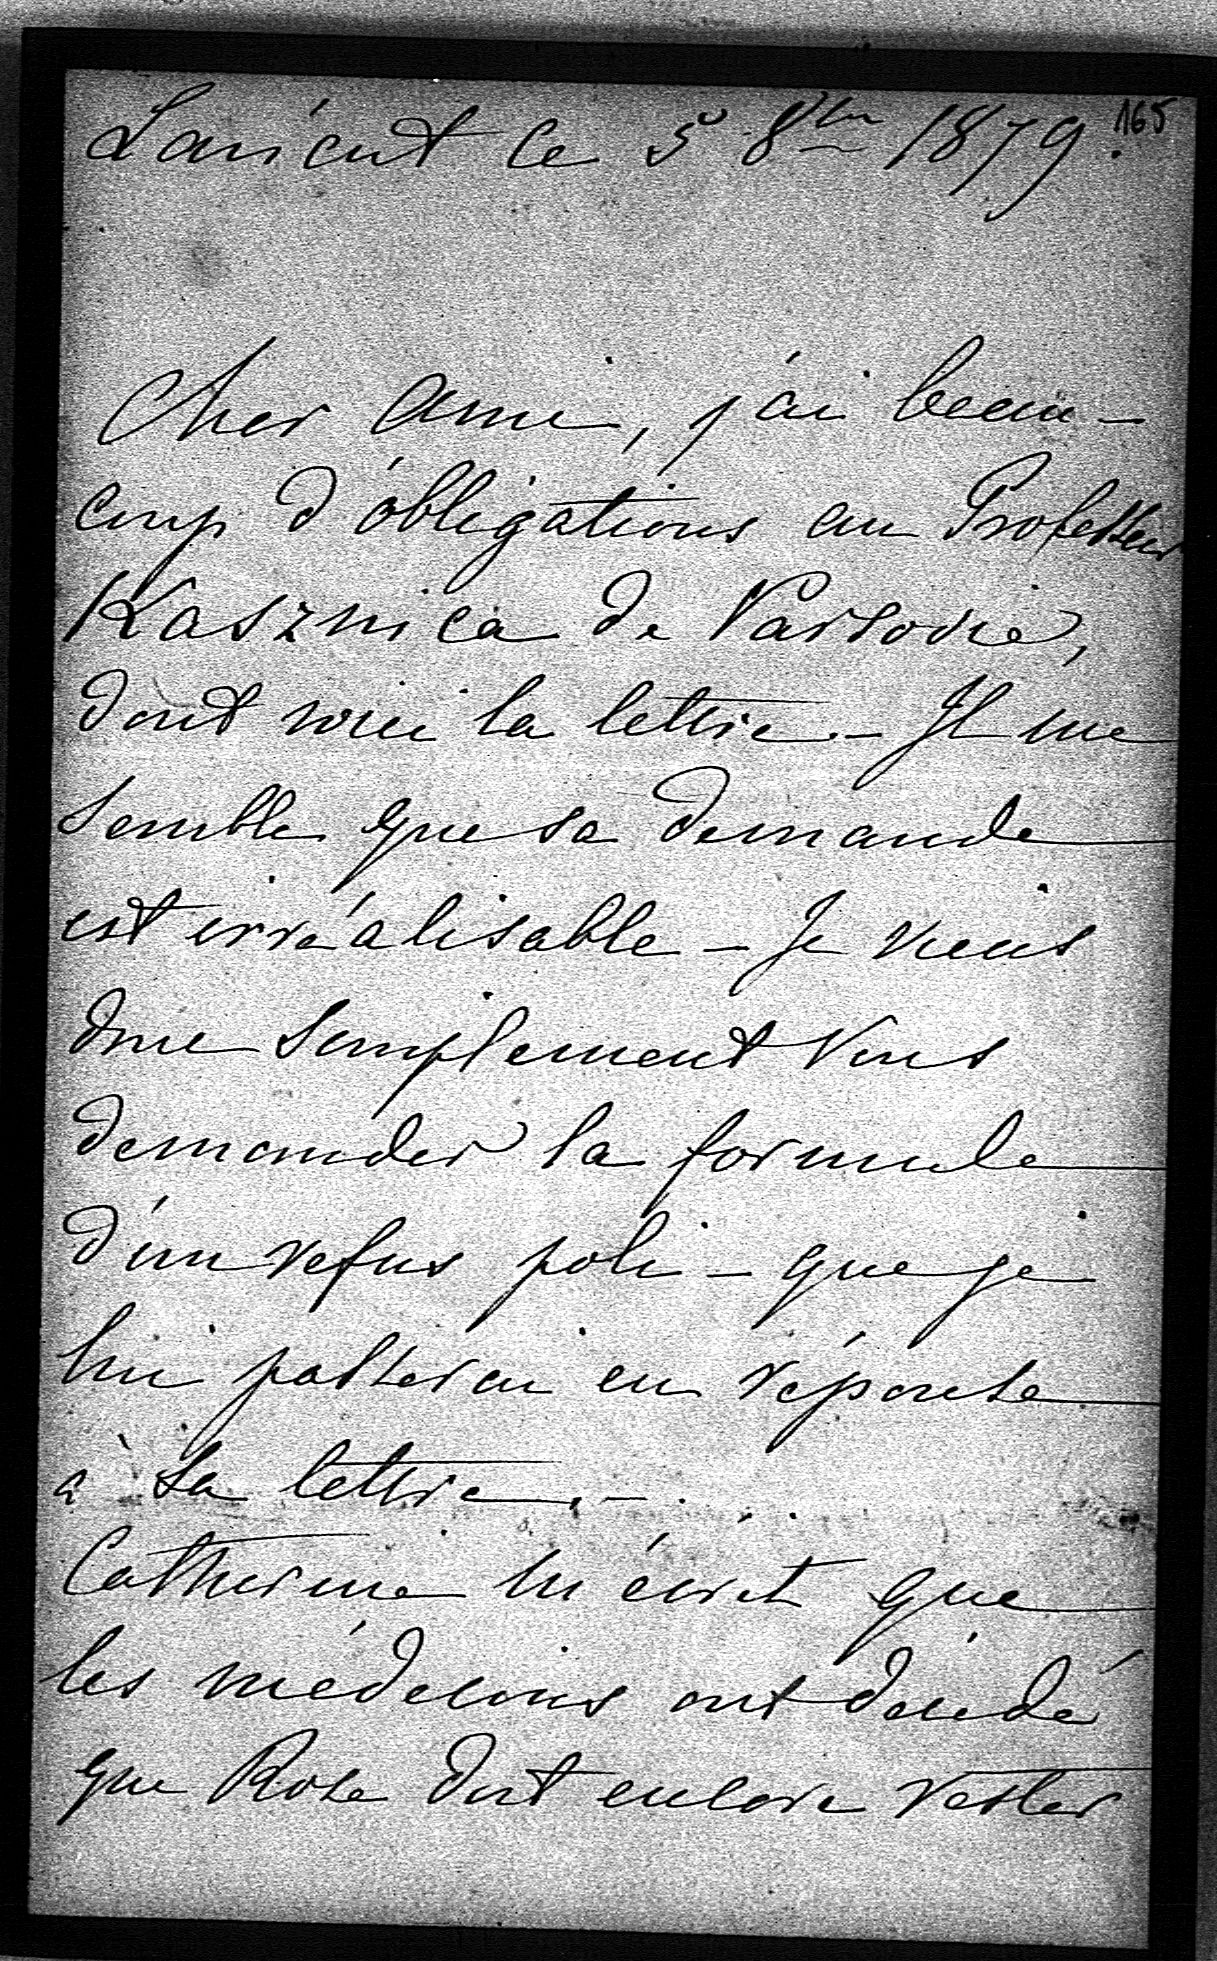 165
Łańcut ce 5 8bre 1879.
Cher Ami, j'ai beau-
coup d'obligations au Professeur
Kasznica de Varsovie,
dont voici la lettre. – Il me
semble que sa demande
est irréalisable – Je viens
donc simplement Vous
demander la formule
d'un refus poli – que je
lui posterai en réponse
à sa lettre. –
Catherine m'écrit que
les médecins ont décidé
que Rose doit encore rester